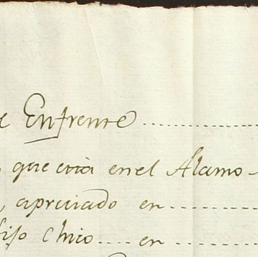 e Enfrente ..........
que está en el Alamo -
, apreciado en --------
hijo Chico .... en --